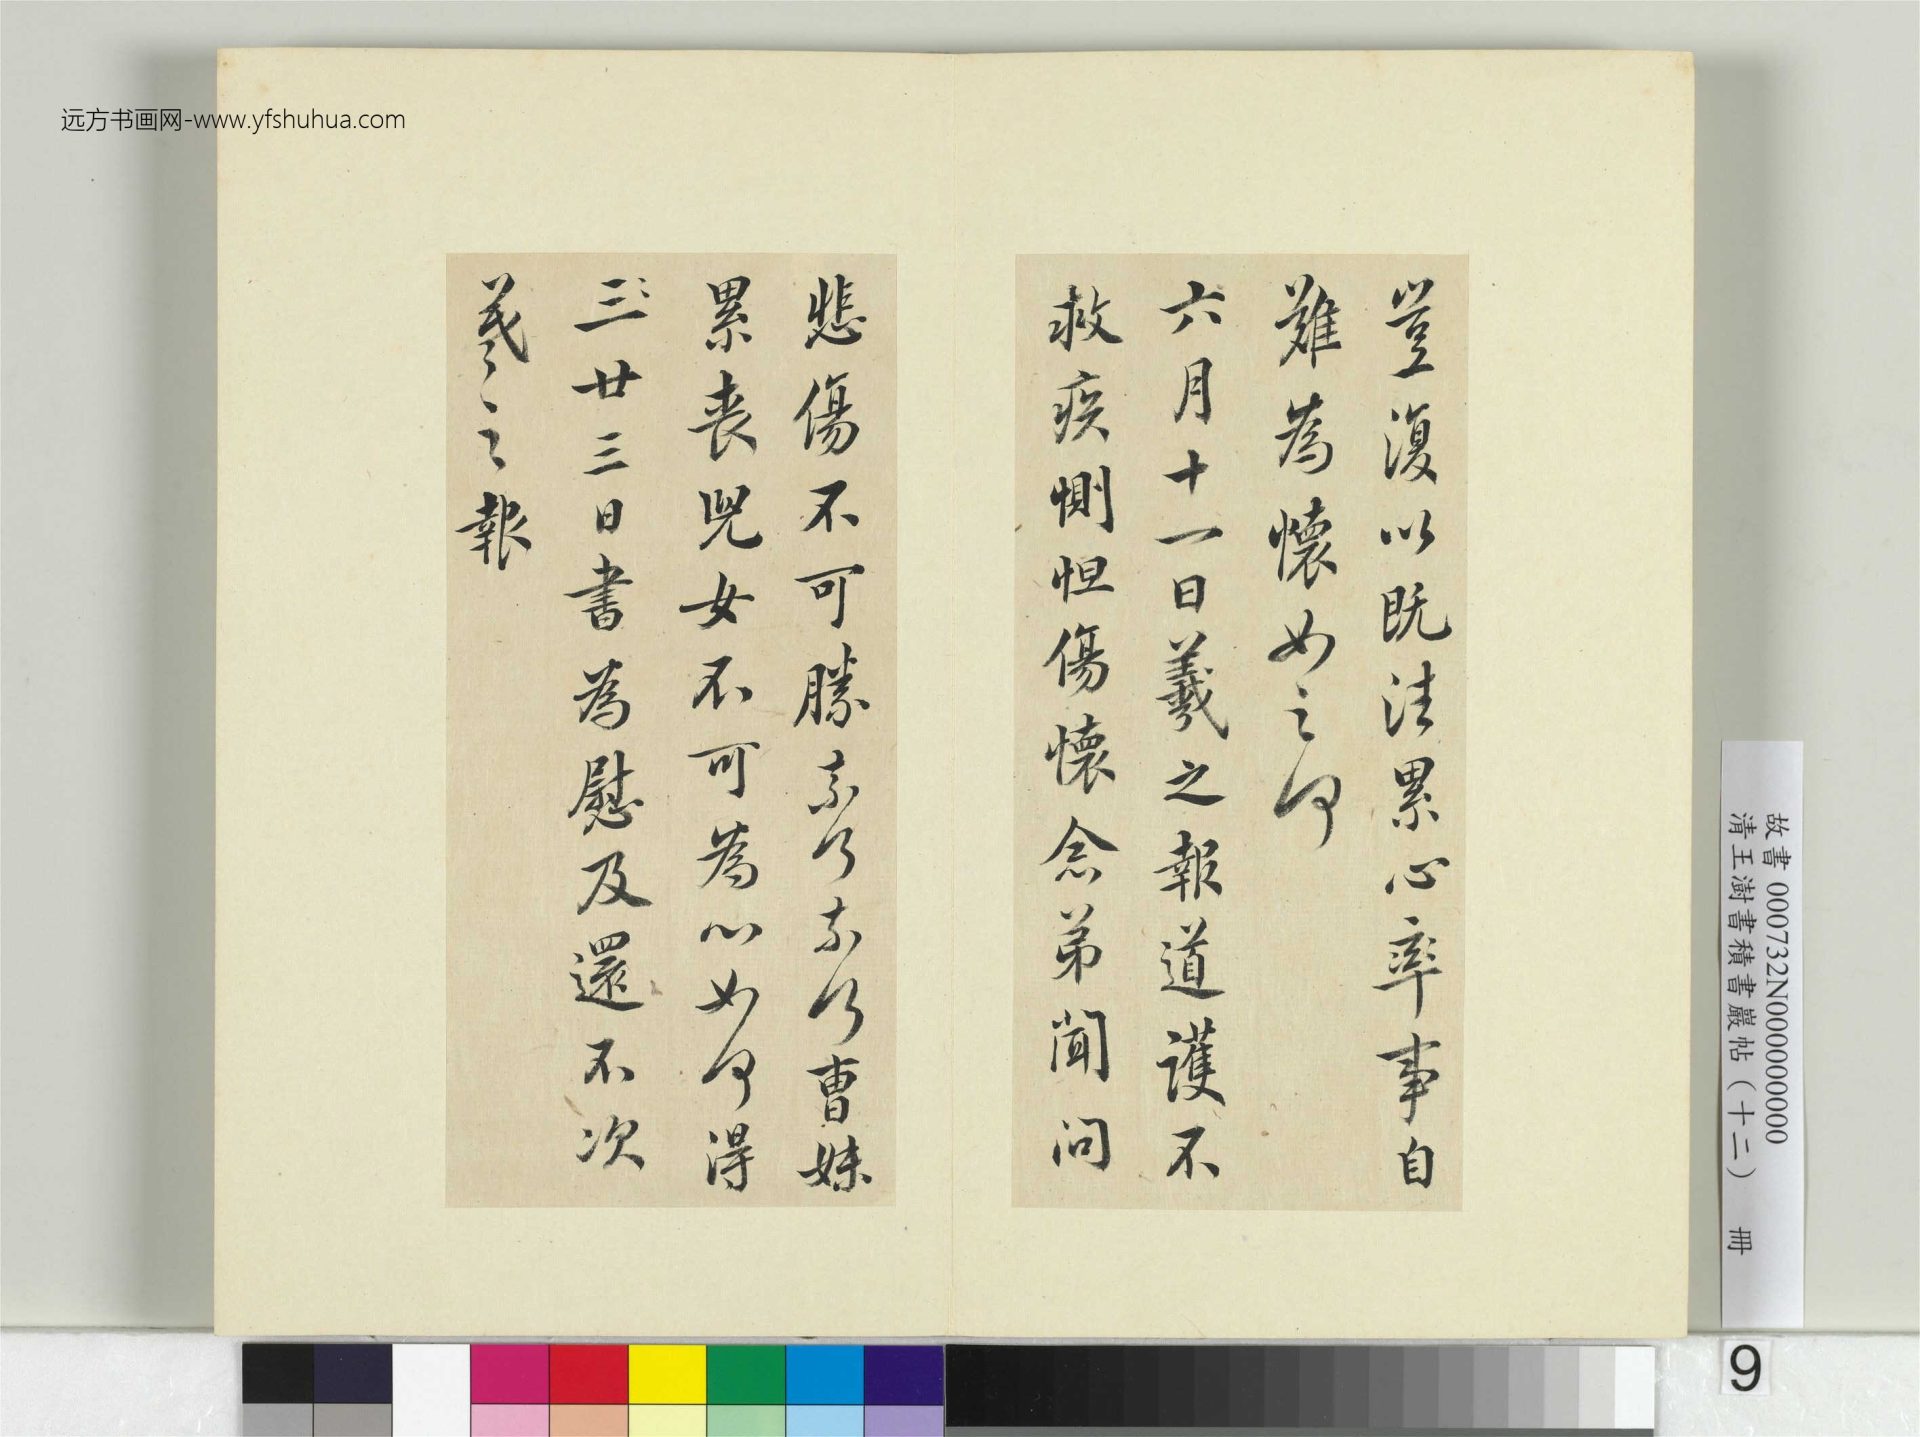 远方书画网-www.yfshuhua.com
豈復以既法累心率事自
難為懷如之何
六月十一日羲之報道護不
救疾惻怛傷懷念弟聞問
悲傷不可勝奈何奈何曹妹
累喪兒女不可為心如何得
三廿三日書為慰及還不次
羲之報
故書 000732N000000000
清王澍書積書巖帖(十二) 冊
9